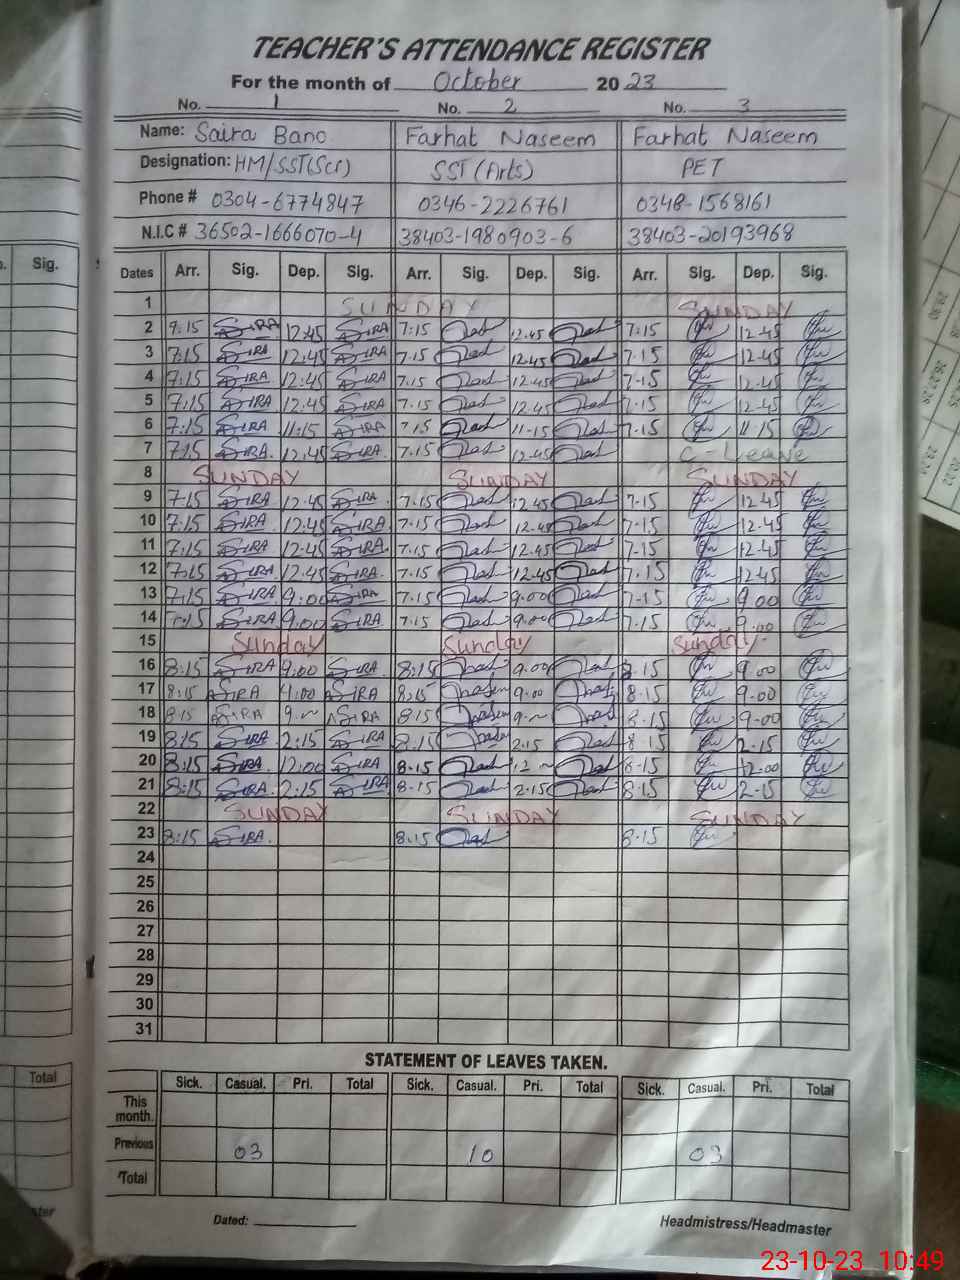 TEACHER'S ATTENDANCE REGISTER
For the month of October 2023
No. 1 No. 2 No. 3
Name: Saira Bano Farhat Naseem Farhat Naseem
Designation: HM/SST(Sci) SST (Arts) PET
Phone # 0304-6774847 0346-2226761 0348-1568161
N.I.C # 36502-1666070-4 38403-1980903-6 38403-20193968
Sig. Dates Arr. Sig. Dep. Sig. Arr. Sig. Dep. Sig. Arr. Sig. Dep. Sig.
1 SUNDAY SUNDAY
2 9:15 SIRA 12:45 SIRA 7:15 12.45 7:15 12.45
3 7:15 SIRA 12:45 SIRA 7.15 12.45 7-15 12.45
4 7:15 SIRA 12:45 SIRA 7.15 12.45 7-15 12.45
5 7:15 SIRA 12:45 SIRA 7.15 12.45 7-15 12.45
6 7:15 SIRA 11:15 SIRA 7.15 11-15 7-15 11-15
7 7:15 SIRA 12:45 SIRA 7.15 12.45 C-Leave
8 SUNDAY SUNDAY SUNDAY
9 7:15 SIRA 12:45 SIRA 7.15 12.45 7-15 12.45
10 7:15 SIRA 12:45 SIRA 7.15 12.45 7-15 12.45
11 7:15 SIRA 12:45 SIRA 7.15 12.45 7-15 12.45
12 7:15 SIRA 12:45 SIRA 7.15 12.45 7-15 12.45
13 7:15 SIRA 9:00 SIRA 7.15 9.00 7-15 9.00
14 7:15 SIRA 9:00 SIRA 7.15 9.00 7.15 9.00
15 Sunday Sunday Sunday
16 8:15 SIRA 9:00 SIRA 8:15 9.00 8.15 9.00
17 8:15 SIRA 4:00 SIRA 8:15 9.00 8.15 9.00
18 8:15 SIRA SIRA 8:15 8.15 9-00
19 8:15 SIRA 2:15 SIRA 8:15 2.15 8-15 2.15
20 8:15 SIRA 12:00 SIRA 8.15 8-15 12.00
21 8:15 SIRA 2:15 SIRA 8-15 2.15 8-15 2-15
22 SUNDAY SUNDAY SUNDAY
23 8:15 SIRA 8.15 8-15
24
25
26
27
28
29
30
31
STATEMENT OF LEAVES TAKEN.
Total Sick. Casual. Pri. Total Sick. Casual. Pri. Total Sick. Casual. Pri. Total
This month.
Previous 03 10 03
Total
Dated: Headmistress/Headmaster
23-10-23 10:49